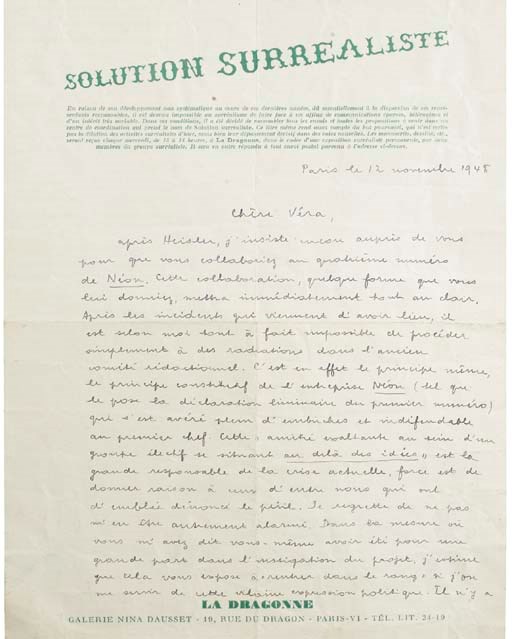 SOLUTION SURREALISTE
En raison de son développement non systématique au cours de ces dernières années, dû essentiellement à la dispersion de ses
il est devenu impossible au surréalisme de faire face à un afflux de communications éparses, hétérogènes et
d'un intérêt très variable. Dans ces conditions, il a été décidé de rassembler tous les envois et toutes les propositions à venir dans un
centre de coordination qui prend le nom de Solution surréaliste. Ce titre même rend assez compte du but poursuivi, qui n'est
pas la des activités surréalistes d'hier, mais bien leur dépassement décisif dans des voies nouvelles. Les manuscrits, dessins, etc.,
seront reçus chaque mercredi, de 15 à 18 heures, à La Dragonne, dans le cadre d'une exposition surréaliste permanente, par deux
membres du groupe surréaliste. Il sera en outre répondu à tout envoi postal parvenu à l'adresse ci-dessus.
Paris le 12 novembre 1948
Chère Véra,
après Heisler, j'insiste encore auprès de vous
pour que vous collaboriez au quatrième numéro
de Néon. Cette collaboration, quelque forme que vous
lui donniez, mettra immédiatement tout au clair.
Après les incidents qui viennent d'avoir lieu, il
est selon moi tout à fait impossible de procéder
simplement à des radiations dans l'ancien
comité rédactionnel. C'est en effet le principe même,
le principe constitutif de l'entreprise Néon (tel que
le pose la déclaration liminaire du premier numéro)
qui s'est avéré plein d'embûches et indéfendable
au premier chef. Cette « amitié exaltante au sein d'un
groupe électif se situant au delà des idées » est la
grande responsable de la crise actuelle, force est de
donner raison à ceux d'entre nous qui ont
d'emblée dénoncé le péril. Je regrette de ne pas
m'en être autrement alarmé. Dans la mesure où
vous m'avez dit vous-même avoir été pour une
grande part dans l'instigation du projet, j'estime
que cela vous expose à « rentrer dans le rang » si j'ose
me servir de cette vilaine expression politique. Il n'y a
LA DRAGONNE
GALERIE NINA DAUSSET - 19, RUE DU DRAGON - PARIS-VI - TÉL. LIT. 24-19